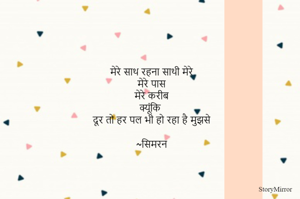 मेरे साथ रहना साथी मेरे
मेरे पास
मेरे करीब
क्यूंकि
दूर तो हर पल भी हो रहा है मुझसे
~सिमरन
StoryMirror